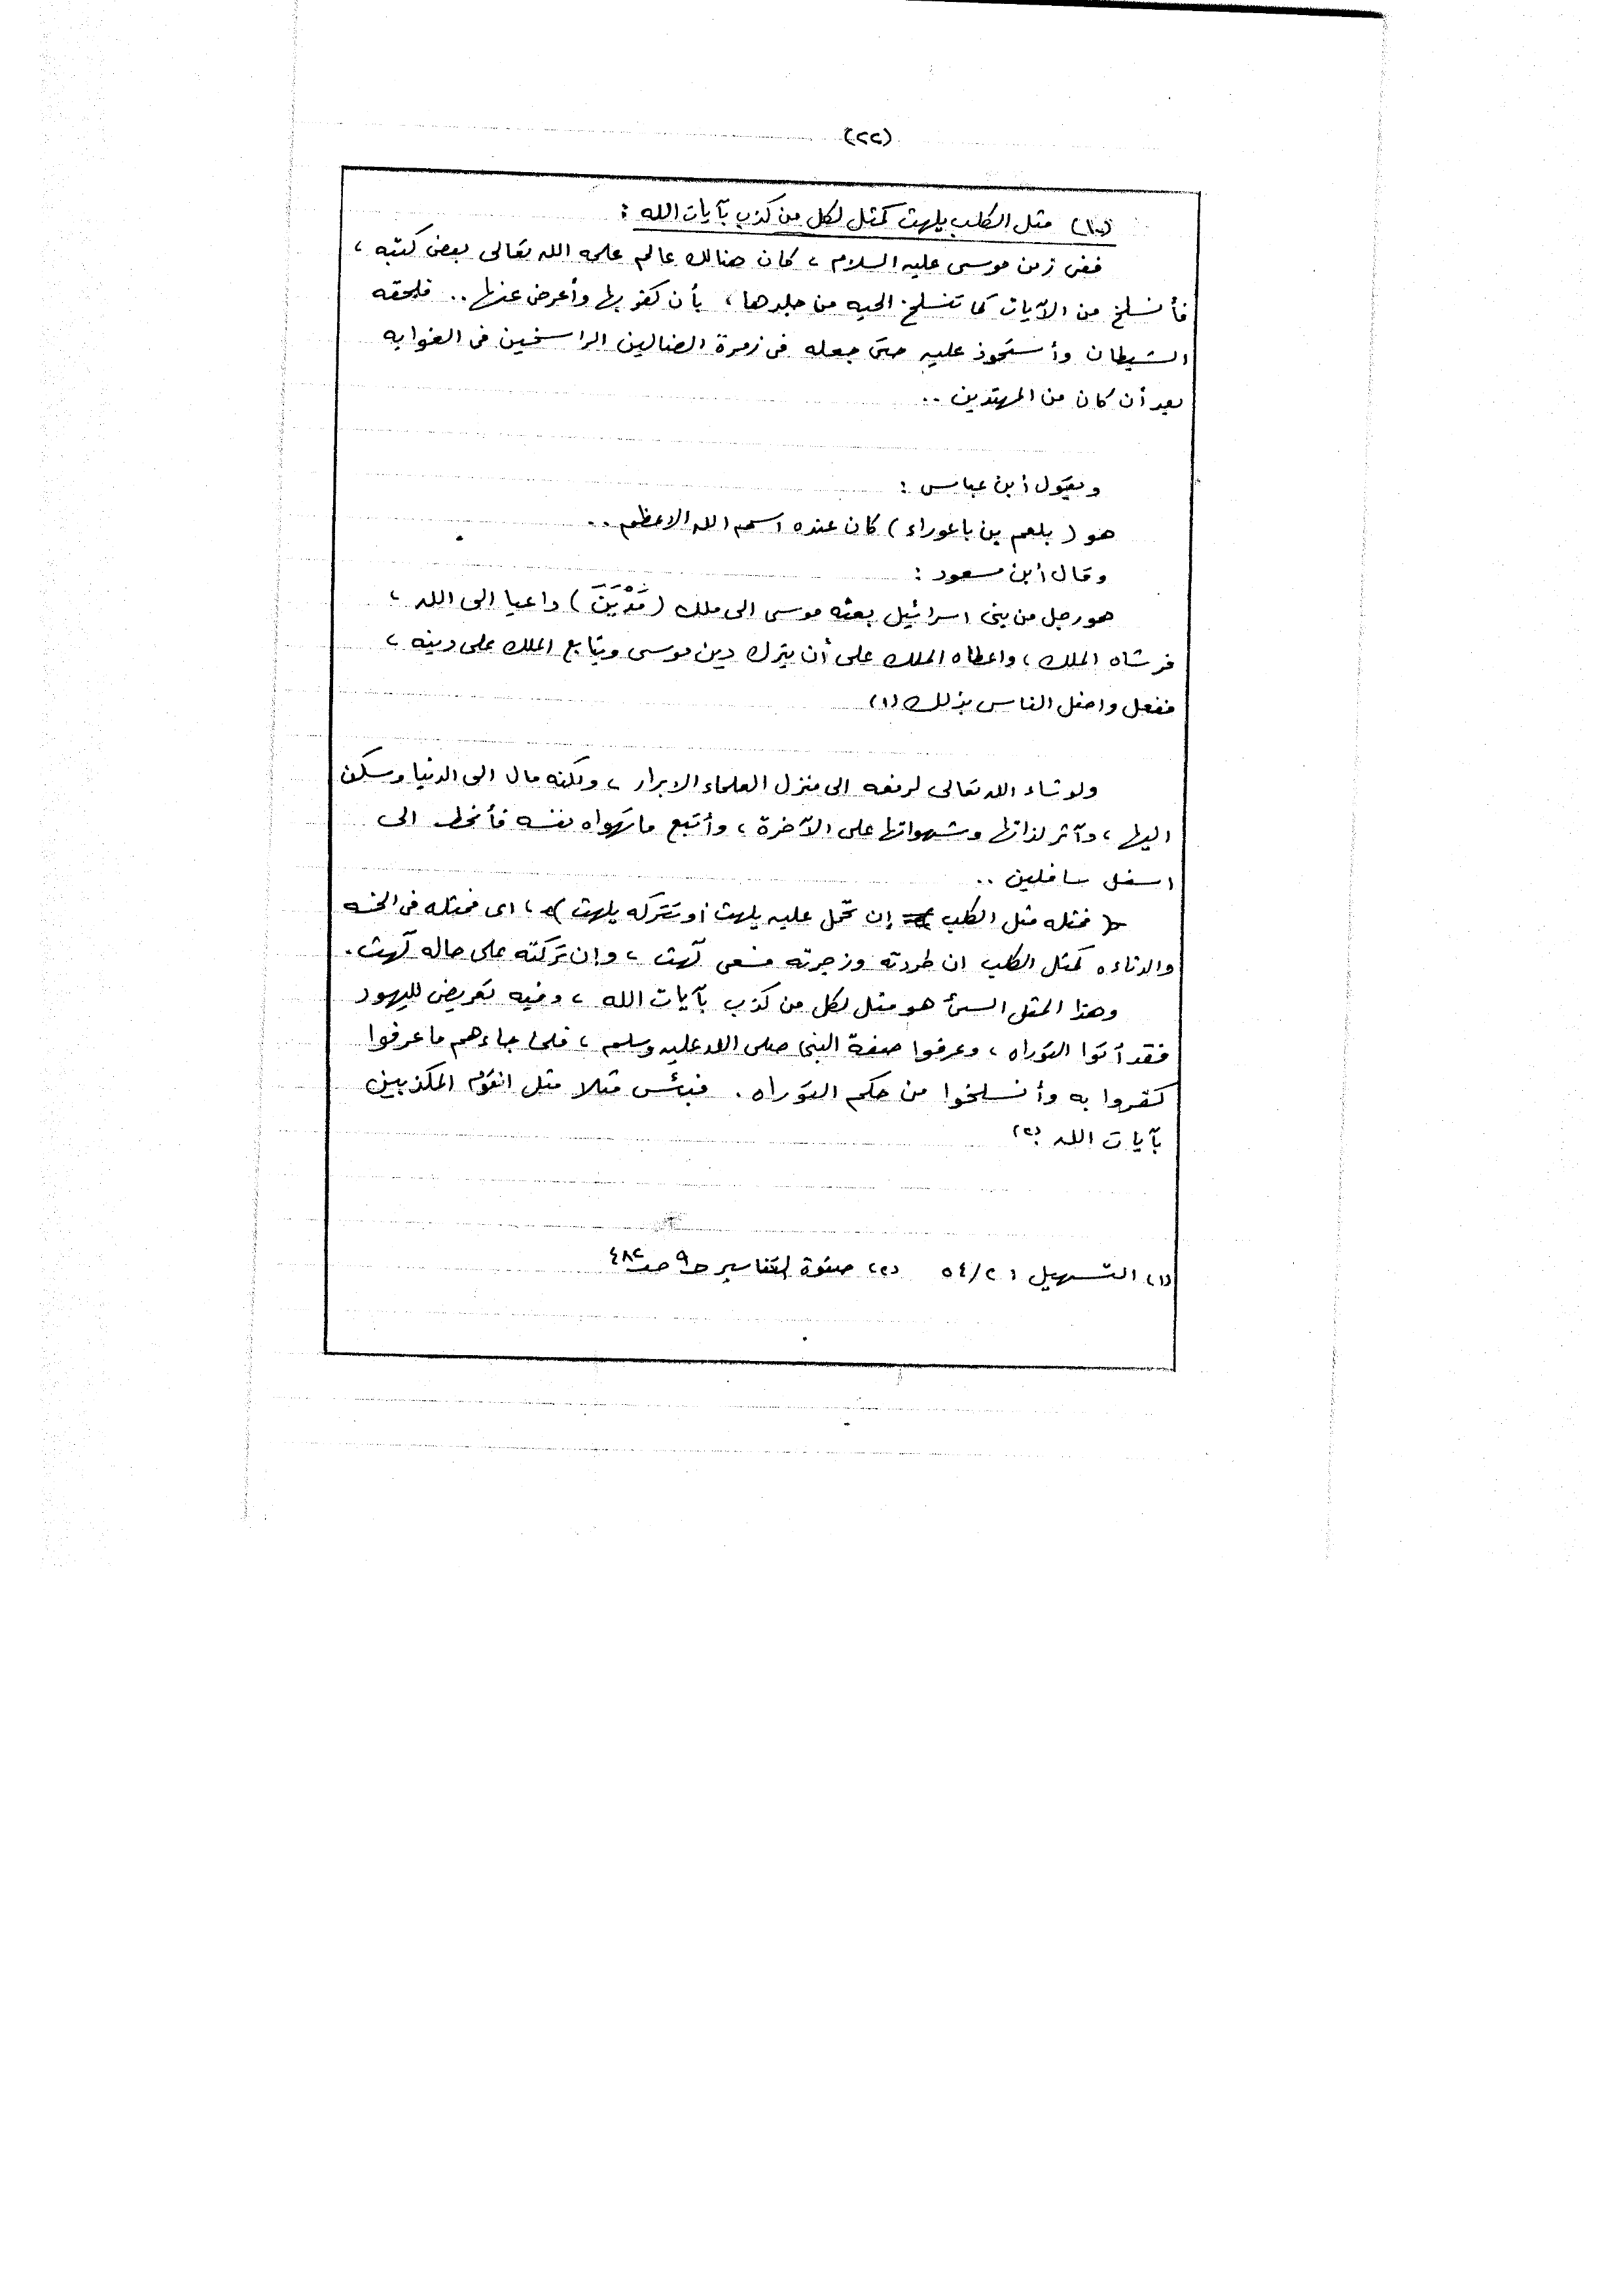 (٢٢)
(١٠) مثل الكلب يلهث كمثل لكل من كذب بآيات الله :
ففى زمن موسى عليه السلام ، كان هنالك عالم علمه الله تعالى بعض كتبه ،
فأنسلخ من الآيات كما تنسلخ الحيه من جلدها ، بأن كفر بها وأعرض عنها .. فلحقه
الشيطان وأستحوذ عليه حتى جعله فى زمرة الضالين الراسخين فى الغوايه
بعد أن كان من المهتدين ..
ويقول أبن عباس :
هو ( بلعم بن باعوراء ) كان عنده اسم الله الاعظم ..
وقال أبن مسعود :
هو رجل من بنى اسرائيل بعثه موسى الى ملك ( مَدْيَنَ ) داعيا الى الله ،
فرشاه الملك ، واعطاه الملك على أن يترك دين موسى ويتابع الملك على دينه ،
ففعل واضل الناس بذلك (١)
ولو شاء الله تعالى لرفعه الى منزل العلماء الابرار ، ولكنه مال الى الدنيا وسكن
اليها ، وآثر لذاتها وشهواتها على الآخرة ، وأتبع ماتهواه نفسه فأنحط الى
اسفل سافلين ..
( فمثله مثل الكلب إن تحمل عليه يلهث أو تتركه يلهث ) ، اى فمثله فى الخسه
والدناءه كمثل الكلب ان طردته وزجرته فسعى لهث ، وإن تركته على حاله لهث .
وهذا المثل السئ هو مثل لكل من كذب بآيات الله ، وفيه تعريض لليهود
فقد أتوا التوراه ، وعرفوا صفة النبى صلى الله عليه وسلم ، فلما جاءهم ماعرفوا
كفروا به وأنسلخوا من حكم التوراه . فبئس مثلا مثل القوم المكذبين
بآيات الله (٢)
(١) التسهيل ٢/٥٤ (٢) صفوة التفاسير حـ٩ صـ٤٨٢